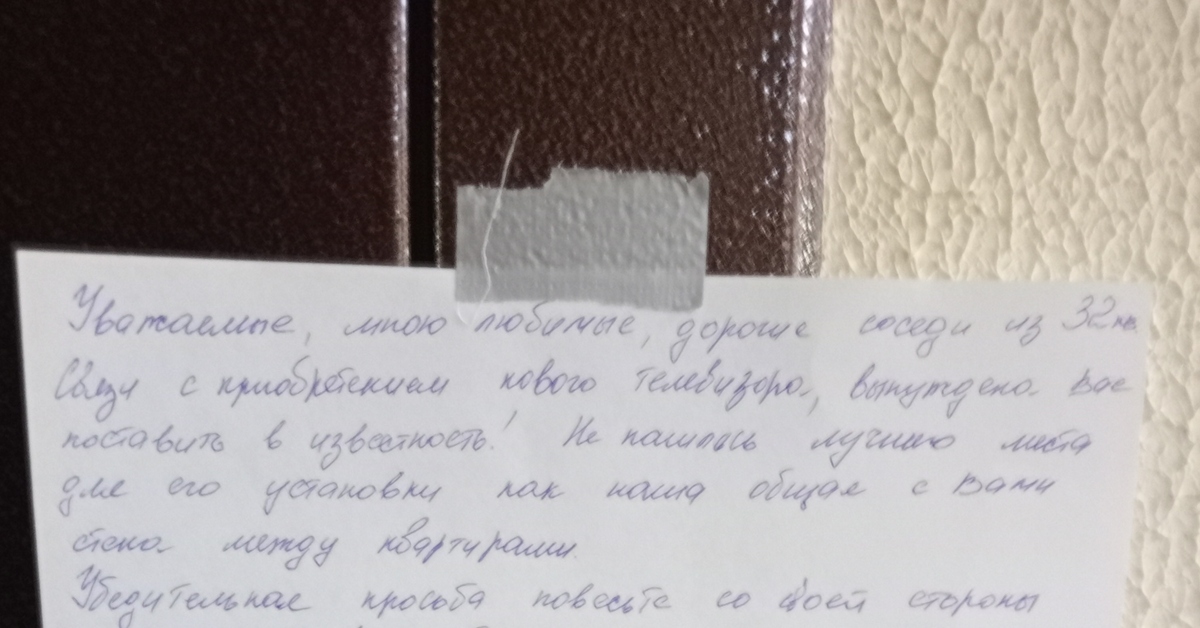 Уважаемые, мною любимые, дорогие соседи из 32 кв.
Связи с приобретением нового телевизора, вынуждена Вас
поставить в известность! Не нашлось лучшего места
для его установки как наша общая с Вами
стена между квартирами.
Убедительная просьба повесьте со своей стороны